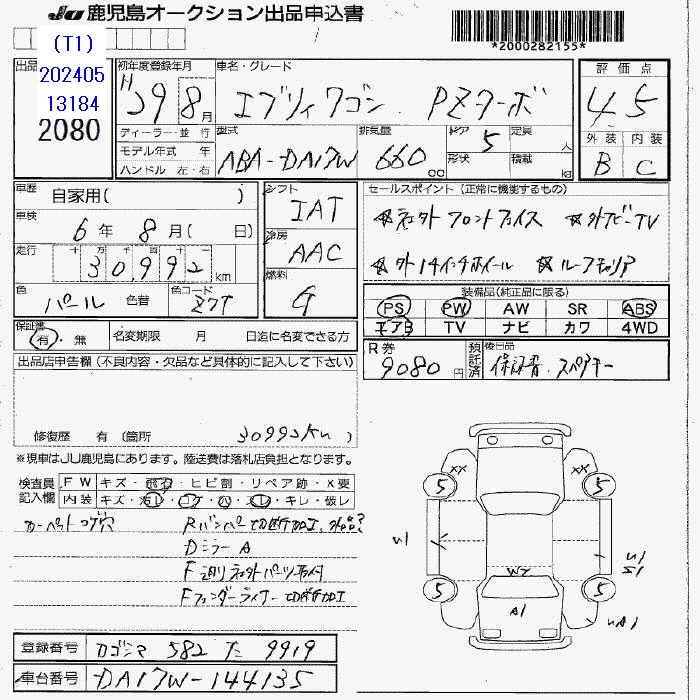 JU 鹿児島オークション出品申込書
*2000282155*
(T1)
202405
13184
2080
出品
初年度登録年月
H29 8月
ディーラー・並 行
モデル年式 年
ハンドル 左・右
車名・グレード
エブリィワゴン PZターボ
型式
ABA-DA17W
排気量
660 cc
ドア 5
形状
定員 人
積載 kg
評価点
4.5
外装 内装
B C
車歴
自家用( )
車検
6年 8月( 日)
走行
十 万 千 百 十 一
30,992 km
色
パール 色替
色コード
Z7T
シフト
IAT
冷房
AAC
燃料
G
セールスポイント (正常に機能するもの)
外ナビーTV
外14インチホイール ルーフキャリア
装備品(純正品に限る)
PS PW AW SR ABS
エアB TV ナビ カワ 4WD
保証書
有・無
名変期限 月 日迄に名変できる方
R券
9080円
預託済
後日品
保証書、スペアキー
出品店申告欄 (不良内容・欠品など具体的に記入して下さい)
修復歴 有 (箇所 30992km )
※現車はJU鹿児島にあります。陸送費は落札店負担となります。
検査員
記入欄
FW キズ・飛石・ヒビ割・リペア跡・X要
内装 キズ・汚レ・コゲ・穴・スレ・キレ・破レ
カーペットコゲ穴
Rバンパー切断加工、外品?
DミラーA
Fフェンダーライナー切断加工
XX XX
5 5
5 5
U1
U1
S1
WY
A1
UA1
登録番号
カゴシマ 582 た 9919
車台番号
DA17W-144135